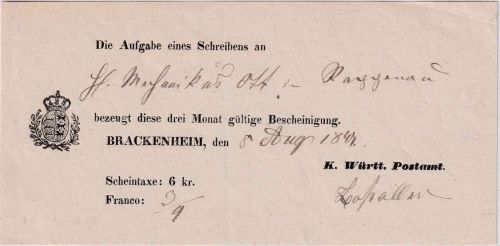 Die Aufgabe eines Schreibens an
H. Mechanikus Ott in
bezeugt diese drei Monat gültige Bescheinigung.
BRACKENHEIM, den 8 Aug
K. Württ. Postamt.
Scheintaxe: 6 kr.
Franco: 3/9